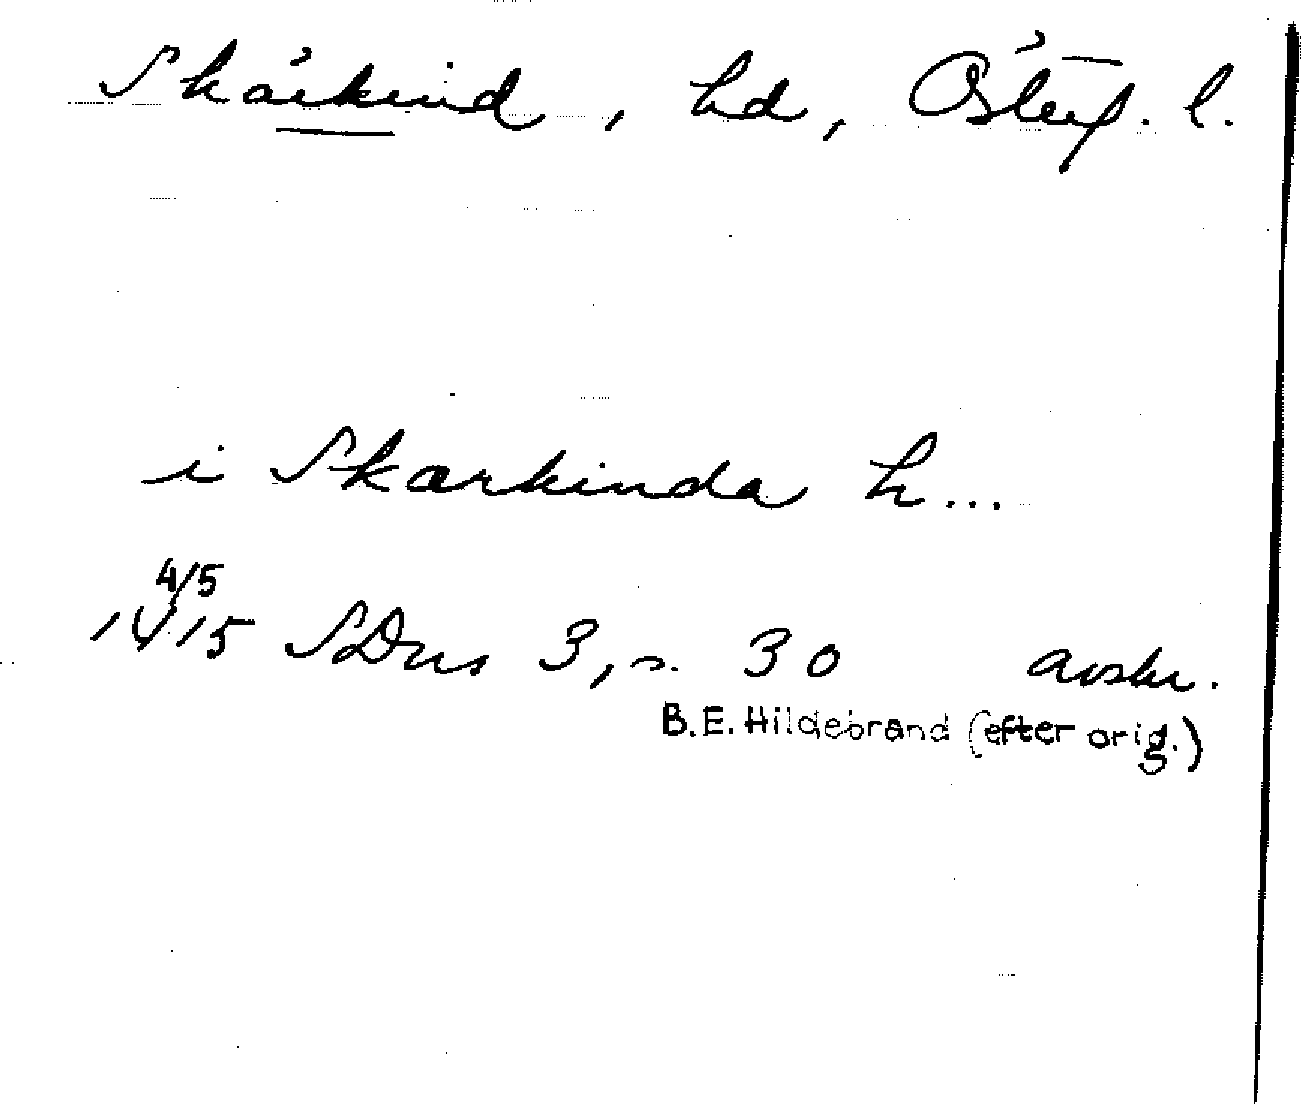 Skärkind, hd, Österg. l.
i Skarkinda h...
4/5
1415 SDns 3, s. 30 avskr.
B.E. Hildebrand (efter orig.)